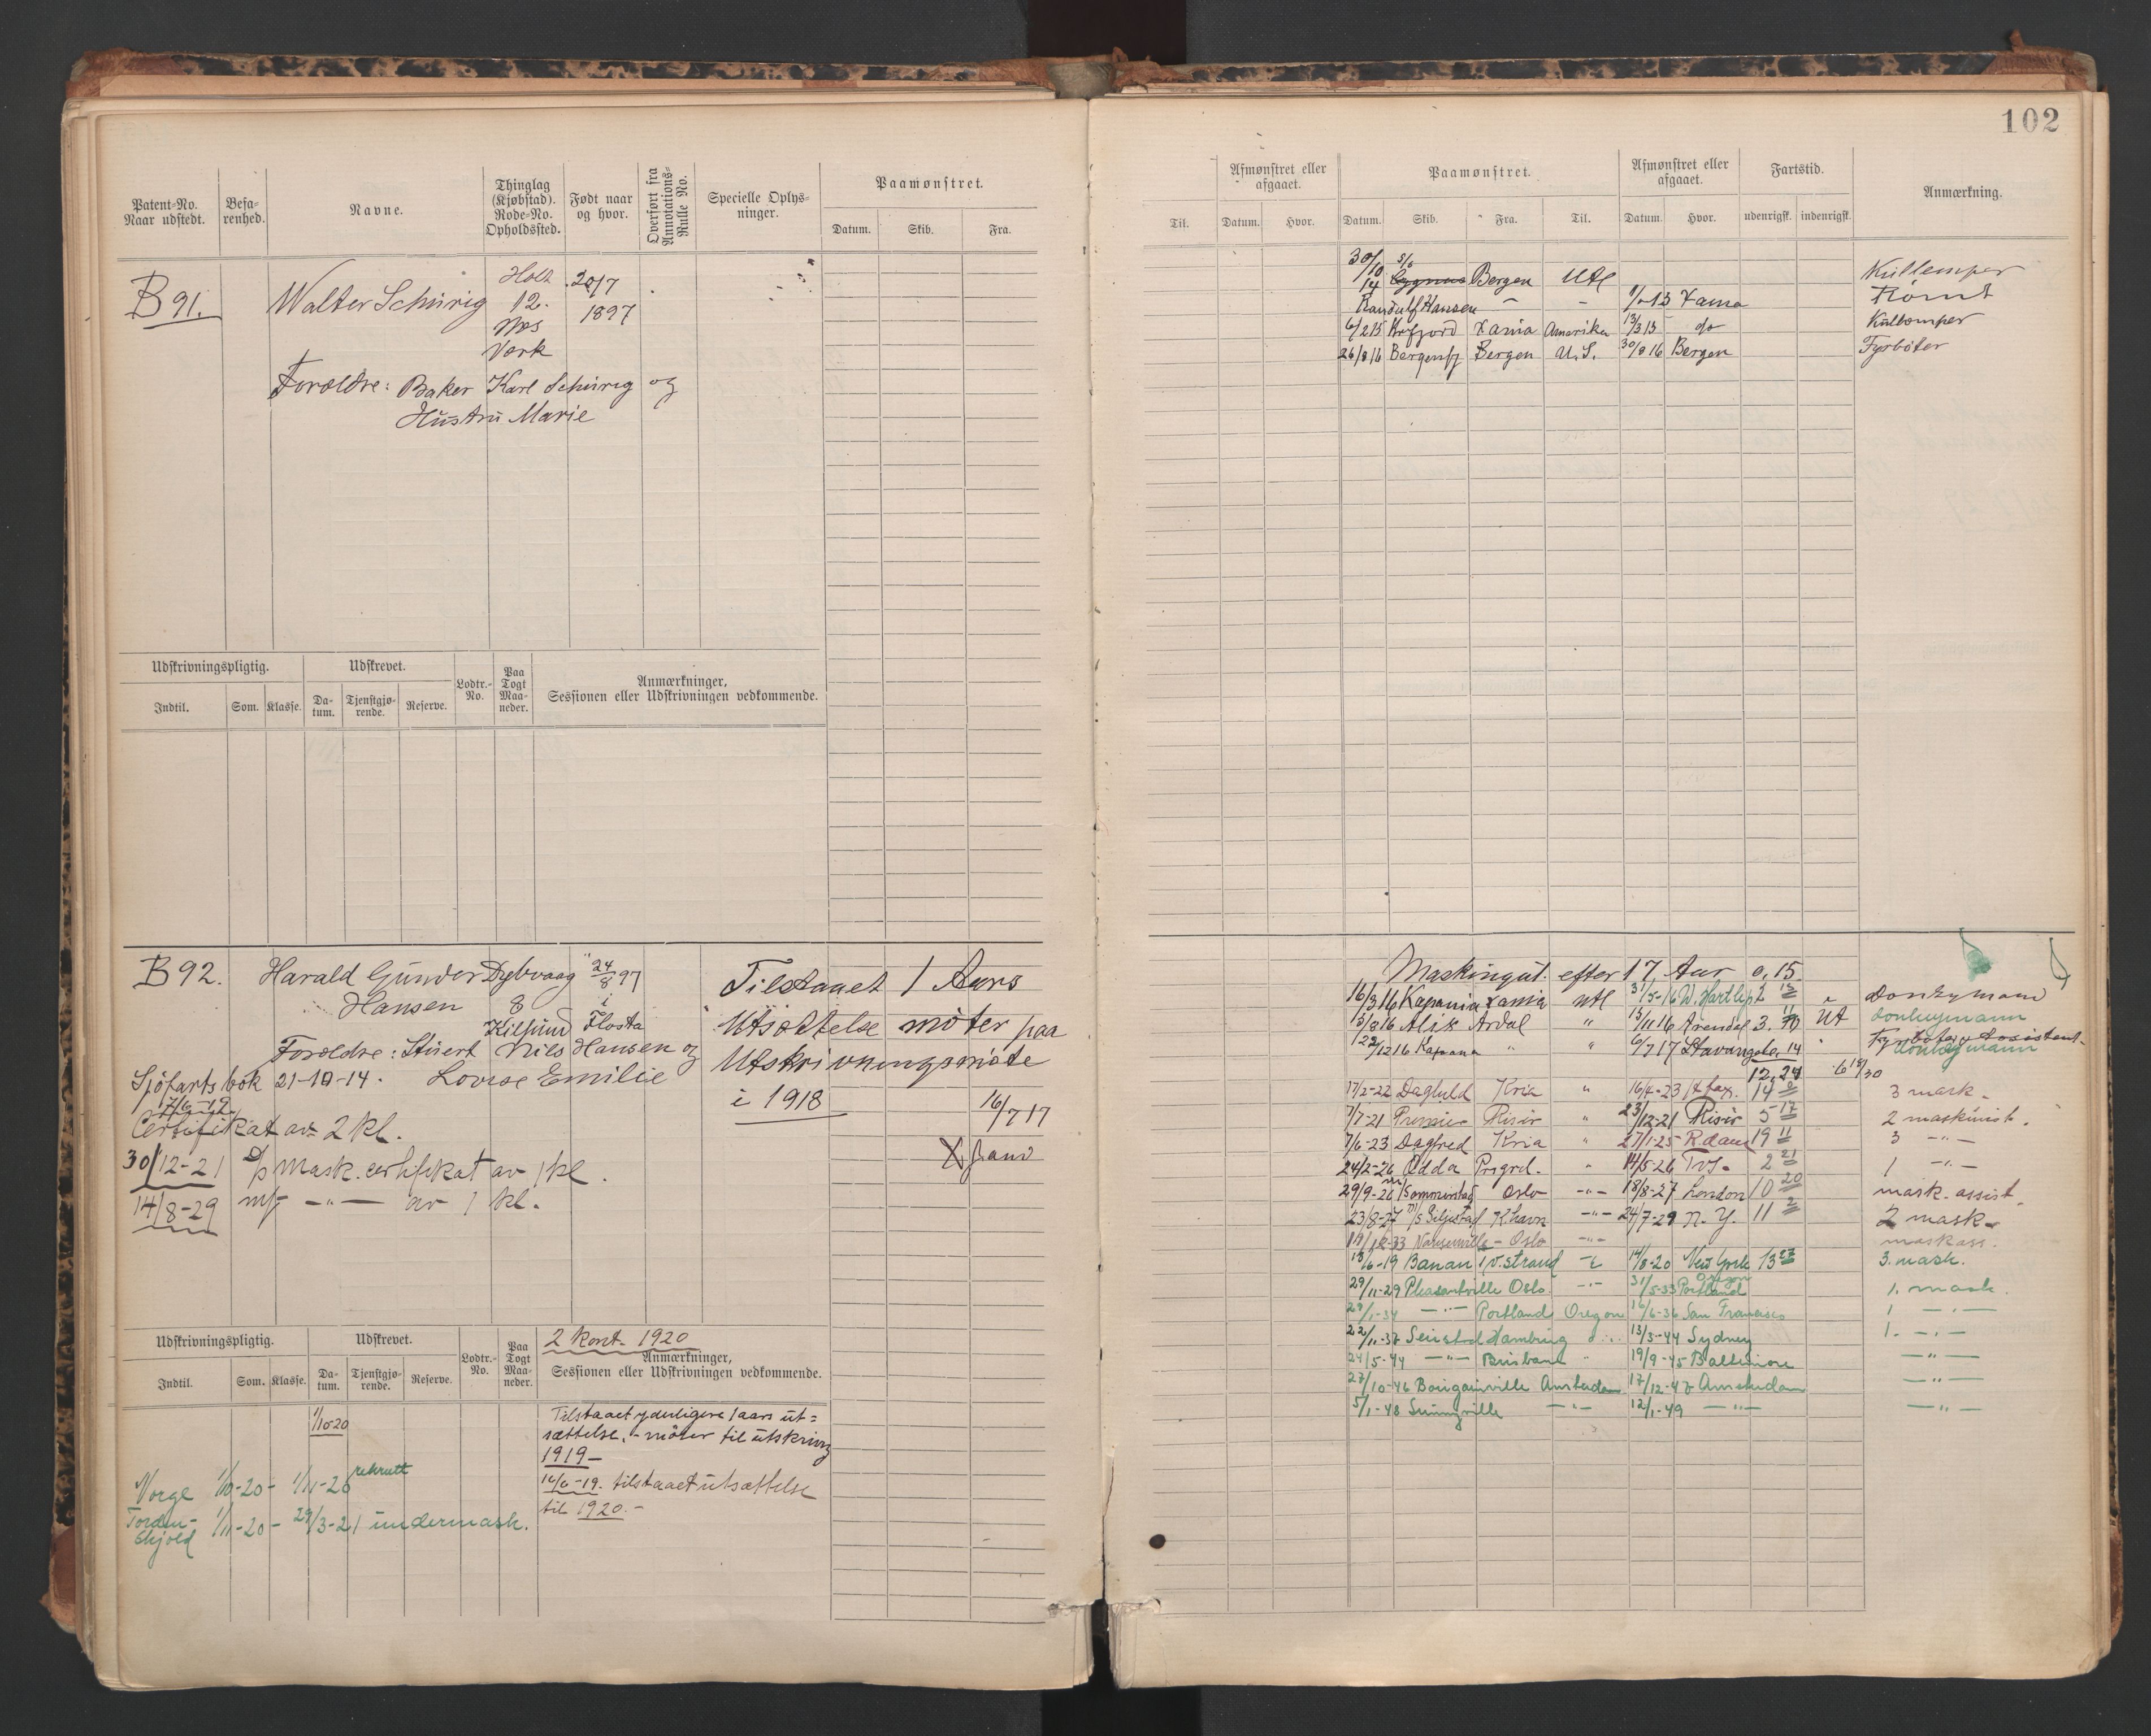 102
Patent-No. Naar udstedt.
Befa-renhed.
Navne.
Thinglag (Kjøbstad). Rode-No. Opholdssted.
Født naar og hvor.
Overført fra Annotations-Rulle No.
Specielle Oplys-ninger.
Paamønstret.
Datum. Skib. Fra.
Til.
Afmønstret eller afgaaet.
Datum. Hvor.
Paamønstret.
Datum. Skib. Fra. Til.
Afmønstret eller afgaaet.
Datum. Hvor.
Fartstid.
udenrigsk. indenrigsk.
Anmærkning.
B 91. Walter Schürig Holt 12. Næs Værk 20/7 1897
Forældre: Baker Karl Schürig og
Hustru Marie
30/10 14 S/S Cygnus Bergen Utl Kullemper
Randulf Hansen - - 13 Xania Rømt
6/2 15 Krfjord Xania Amerika 13/3 15 do Kullemper
26/8 16 Bergensfj Bergen U.S. 30/9 16 Bergen Fyrbøter
Udskrivningspligtig. Udskrevet.
Indtil. Som. Klasse. Da-tum. Tjenstgjø-rende. Reserve. Lodtr.-No. Paa Togt Maa-neder.
Anmærkninger, Sessionen eller Udskrivningen vedkommende.
B 92. Harald Gunder Dybvaag 24/8 97
Hansen 8 i
Kilsund Flosta
Forældre: Stuert Nils Hansen og
Lovise Emilie
Sjöfartsbok 21-10-14.
Certifikat av 2 kl.
30/12-21 D/p Mask. certifikat av 1 kl.
14/8-29 m/ -"- av 1 kl.
Tilstaaet 1 Aars
Utsættelse møter paa
Utskrivningsmøte
i 1918
16/7 17
X fand
Maskingut. efter 17 Aar 0,15
16/3 16 Kapania Xania Utl 31/5-16 W. Hartlep. Donkymand
5/8 16 Alik Ardal " 13/11 16 Arendal 3. Ut donkeymann
22/12 16 Kapana " " 6/7 17 Stavanger 14 Fyrbøter, Assistent
donkeymann
12,24
17/2-22 Daghild Kria " 16/4-23 14 3 mask.
7/7-21 Risør " 23/12-21 Risør 5 17 2 maskinist.
7/6-23 Dagfred Kria " 27/1-25 R.dam 19 11 3 -"-
24/2-26 Odda Prsgrd. " 14/5-26 2 21 1 -"-
29/9-26 Sommerstad Oslo -"- 18/8-27 London 10 20 mask. assist.
23/8-27 M/S Siljestad Khavn -"- 24/7-29 N. Y. 11 2 2 mask.
Nansenville - Oslo -"- maskass.
13/6-19 Banan v. strand - 14/8-20 New York 13 3. mask.
29/11-29 Pleasantville Oslo -"- 31/5-33 Portland Oregon 1. mask.
29/1-34 -"- Portland Oregon 16/6-36 San Francisco 1 -"-
22/1-37 Hamburg 13/3-44 Sydney 1. -"-
24/5-44 -"- Brisbane " 19/9-45 Baltimore -"-
27/10-46 Bougainville Amsterdam 17/12-47 Amsterdam -"-
5/1-48 Sunnyville -"- 12/1-49 -"- -"-
Udskrivningspligtig. Udskrevet.
Indtil. Som. Klasse. Da-tum. Tjenstgjø-rende. Reserve. Lodtr.-No. Paa Togt Maa-neder.
2 kont. 1920
Anmærkninger, Sessionen eller Udskrivningen vedkommende.
1/10-20
Tilstaaet yderligere 1 aars ut-
sættelse. - møter til utskrivng
1919 -
14/6-19. tilstaaet utsættelse
til 1920. -
Norge 1/10-20 - 1/11-20 rekrutt
Torden-
skjold 1/11-20 - 29/3-21 undermask.